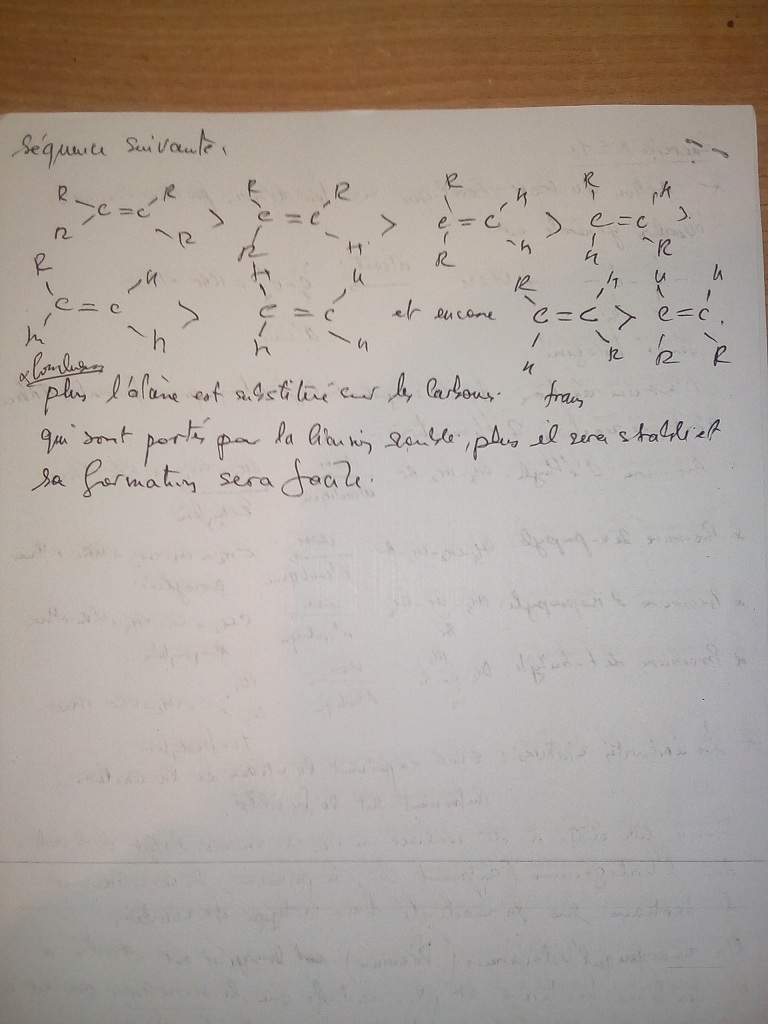 Séquence suivante.
R R R R R H R H
C=C > C=C > C=C > C=C >
R R R H R H H R
R H H H R H H H
C=C > C=C et encore C=C > C=C.
H H H H H R R R
plus l'alcène est substitué sur les carbones. trans
qui sont portés par la liaison double, plus il sera stable et
sa formation sera facile.